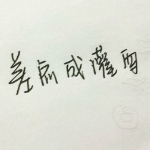 差点成灌西